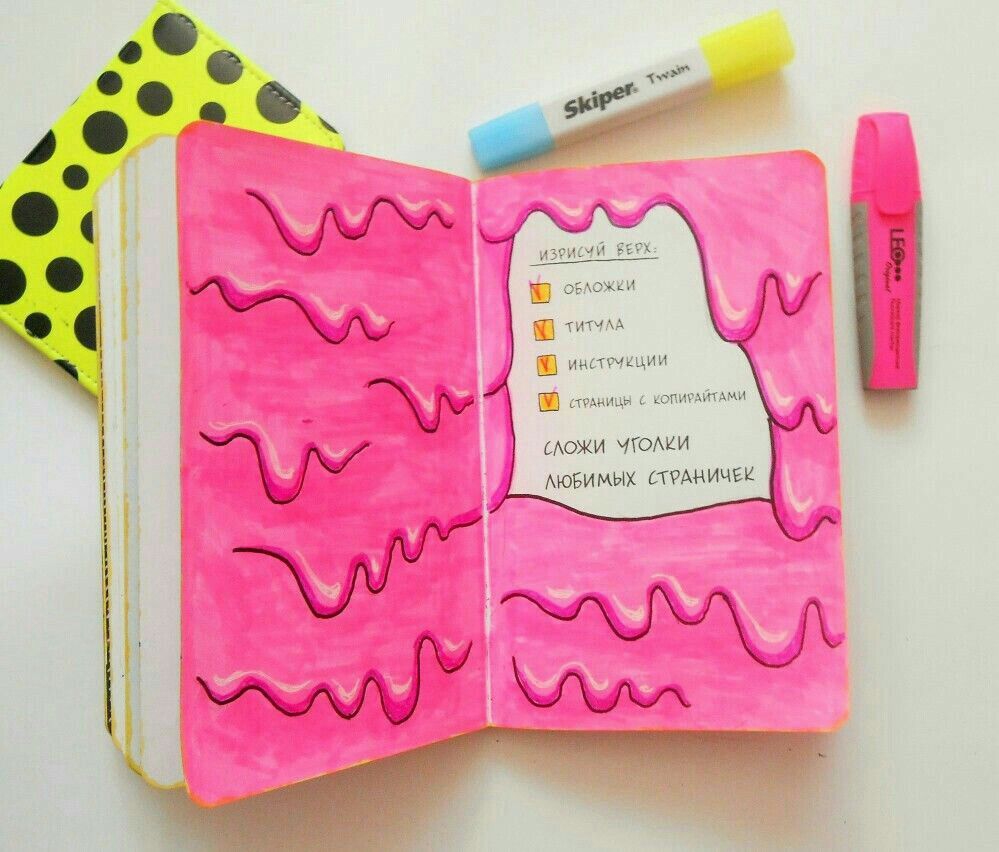 Skiper Twain
ИЗРИСУЙ ВЕРХ:
ОБЛОЖКИ
ТИТУЛА
ИНСТРУКЦИИ
СТРАНИЦЫ С КОПИРАЙТАМИ
СЛОЖИ УГОЛКИ
ЛЮБИМЫХ СТРАНИЧЕК
LEO
Original